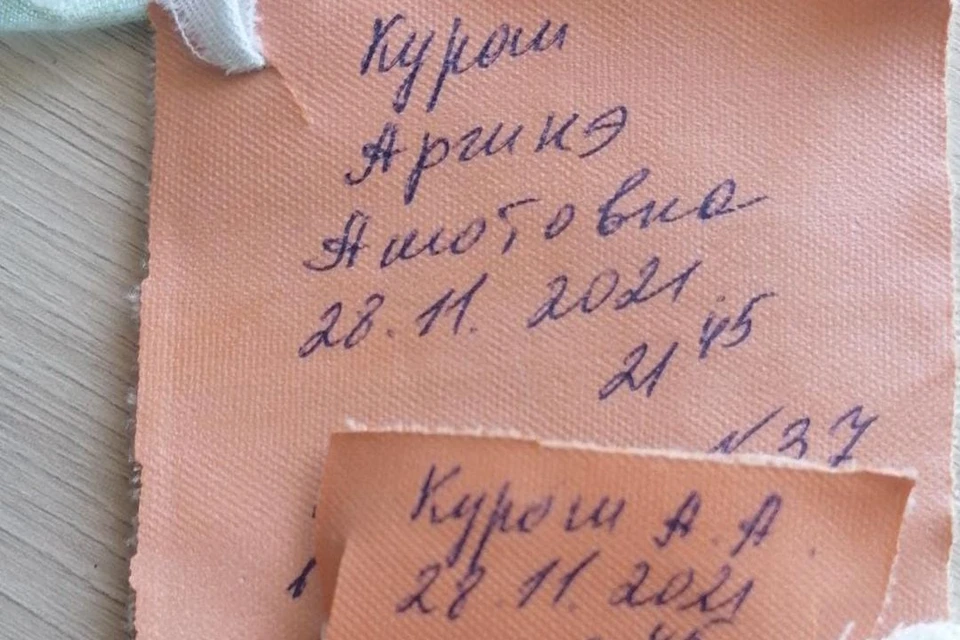 Курош
Аргинэ
Ашотовна
28.11.2021
21 45
N 37
Курош А.А.
28.11.2021
45